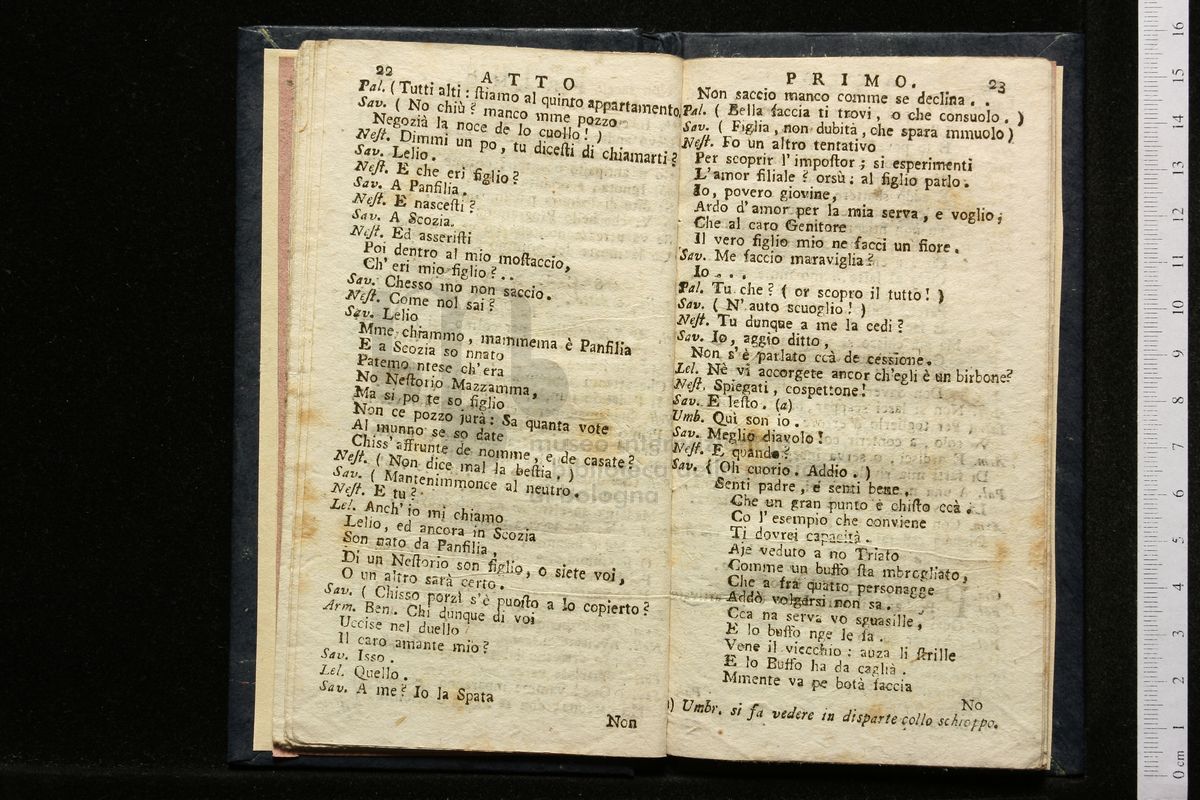 22 ATTO
Pal. ( Tutti alti : ſtiamo al quinto appartamento,
Sav. ( No chiù ? manco mme pozzo
Negozià la noce de lo cuollo ! )
Neſt. Dimmi un po, tu diceſti di chiamarti ?
Sav. Lelio.
Neſt. E che eri figlio ?
Sav. A Panfilia.
Neſt. E naſceſti ?
Sav. A Scozia.
Neſt. Ed asseriſti
Poi dentro al mio moſtaccio,
Ch' eri mio figlio ? . .
Sav. Chesso mo non saccio.
Neſt. Come nol sai ?
Sav. Lelio
Mme chiammo, mammema è Panfilia
E a Scozia so nnato
Patemo ntese ch'era
No Neſtorio Mazzamma,
Ma si po te so figlio
Non ce pozzo jurà : Sa quanta vote
Al munno se so date
Chiss' affrunte de nomme, e de casate ?
Neſt. ( Non dice mal la beſtia. )
Sav. ( Mantenimmonce al neutro.
Neſt. E tu ?
Lel. Anch' io mi chiamo
Lelio, ed ancora in Scozia
Son nato da Panfilia,
Di un Neſtorio son figlio, o siete voi,
O un altro sarà certo.
Sav. ( Chisso porzì s'è puoſto a lo copierto ?
Arm. Ben. Chi dunque di voi
Uccise nel duello
Il caro amante mio ?
Sav. Isso.
Lel. Quello.
Sav. A me ? Io la Spata
Non
PRIMO. 23
Non saccio manco comme se declina . .
Pal. ( Bella faccia ti trovi, o che consuolo. )
Sav. ( Figlia, non dubità, che spara mmuolo )
Neſt. Fo un altro tentativo
Per scoprir l' impoſtor ; si esperimenti
L'amor filiale ? orsù : al figlio parlo.
Io, povero giovine,
Ardo d'amor per la mia serva, e voglio,
Che al caro Genitore
Il vero figlio mio ne facci un fiore.
Sav. Me faccio maraviglia ?
Io . . .
Pal. Tu che ? ( or scopro il tutto ! )
Sav. ( N' auto scuoglio ! )
Neſt. Tu dunque a me la cedi ?
Sav. Io, aggio ditto,
Non s'è parlato ccà de cessione.
Lel. Nè vi accorgete ancor ch'egli è un birbone ?
Neſt. Spiegati, cospettone !
Sav. E leſto. (a)
Umb. Qui son io.
Sav. Meglio diavolo !
Neſt. E quando ?
Sav. ( Oh cuorio. Addio. )
Senti padre, e senti bene,
Che un gran punto è chiſto ccà.
Co l' esempio che conviene
Ti dovrei capacità.
Aje veduto a no Triato
Comme un buffo ſta mbrogliato,
Che a fra quatto personagge
Addò volgarsi non sa.
Cca na serva vo sguasille,
E lo buffo nge le fa.
Vene il viecchio : auza li ſtrille
E lo Buffo ha da caglià.
Mmente va pe botà faccia
No
) Umbr. si fa vedere in disparte collo schioppo.